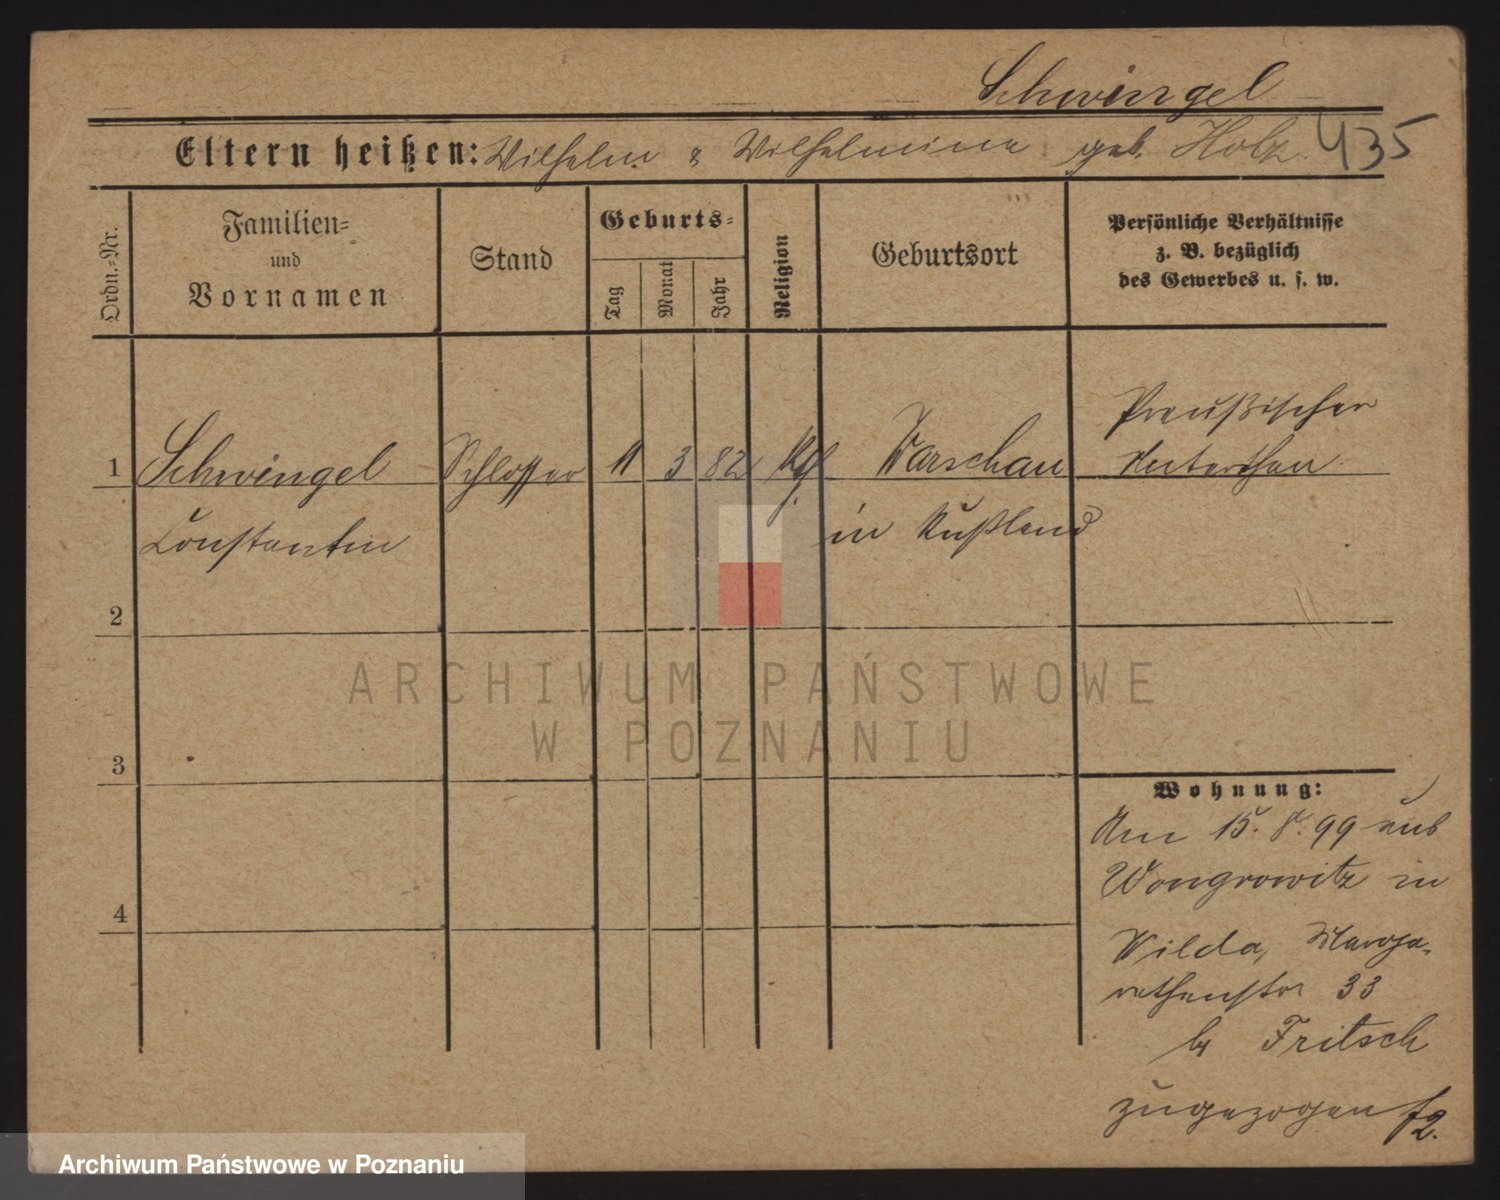 Schwingel
Eltern heißen: Wilhelm & Wilhelmine geb. Holz. 435
Ordn.-Nr.
Familien-
und
Vornamen
Stand
Geburts-
Tag
Monat
Jahr
Religion
Geburtsort
Persönliche Verhältnisse
z. B. bezüglich
des Gewerbes u. s. w.
Preußischer
1 Schwingel Schlosser 11 3 82 Kth. Warschau Unterthan
Constantin in Rußland
2
ARCHIWUM PAŃSTWOWE
W POZNANIU
3
Wohnung:
Am 15. 8. 99 aus
Wongrowitz in
4
Wilda, Marga-
rethenstr 33
by Fritsch
zugezogen
Archiwum Państwowe w Poznaniu